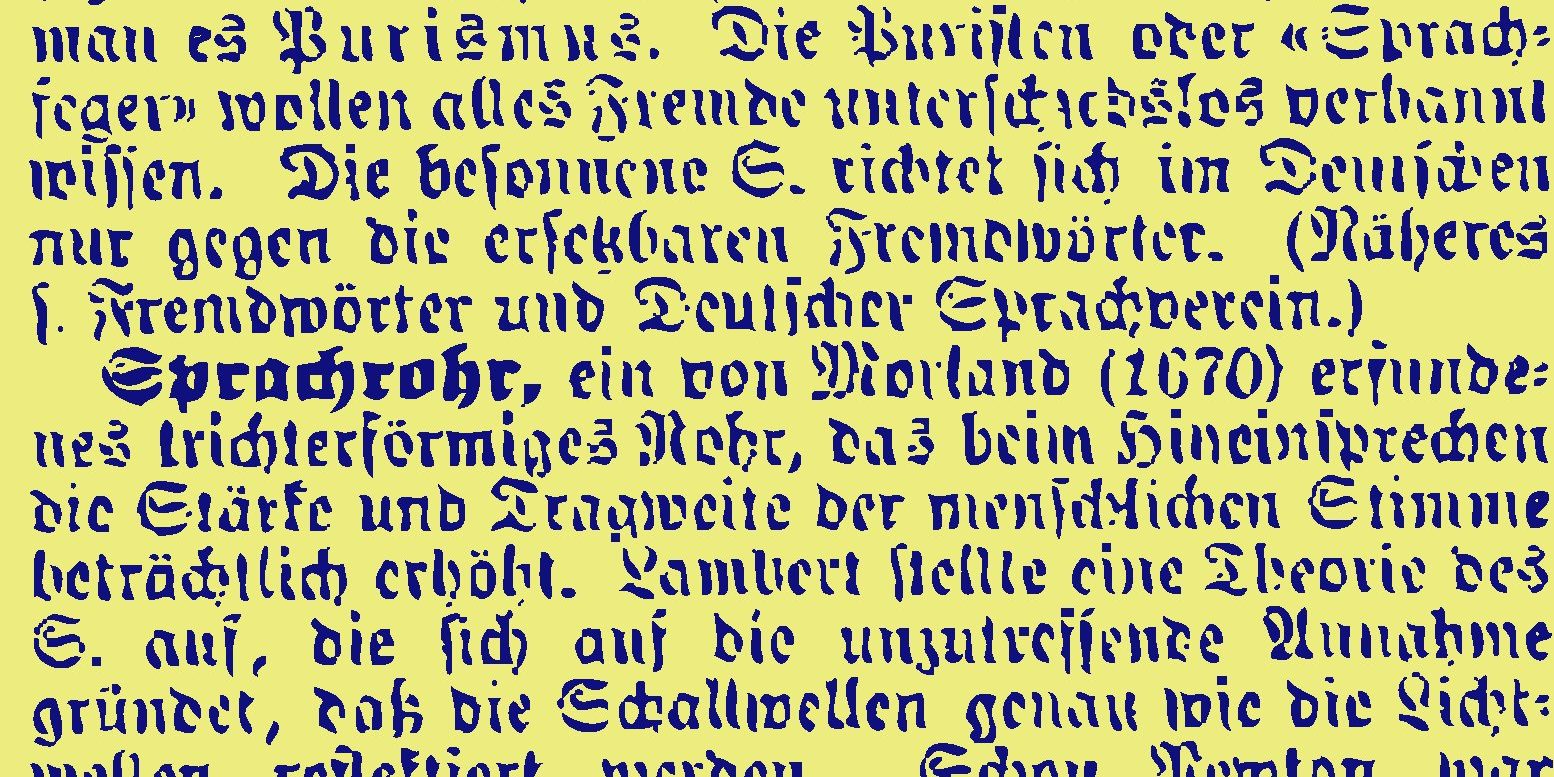 man es Purismus. Die Puristen oder «Sprach-
feger» wollen alles Fremde unterschiedslos verbannt
wissen. Die besonnene S. richtet sich im Deutschen
nur gegen die ersetzbaren Fremdwörter. (Näheres
s. Fremdwörter und Deutscher Sprachverein.)
Sprachrohr, ein von Morland (1670) erfunde-
nes trichterförmiges Rohr, das beim Hineinsprechen
die Stärke und Tragweite der menschlichen Stimme
beträchtlich erhöht. Lambert stellte eine Theorie des
S. auf, die sich auf die unzutreffende Annahme
gründet, daß die Schallwellen genau wie die Licht-
wellen reflektiert werden. Schon Newton war